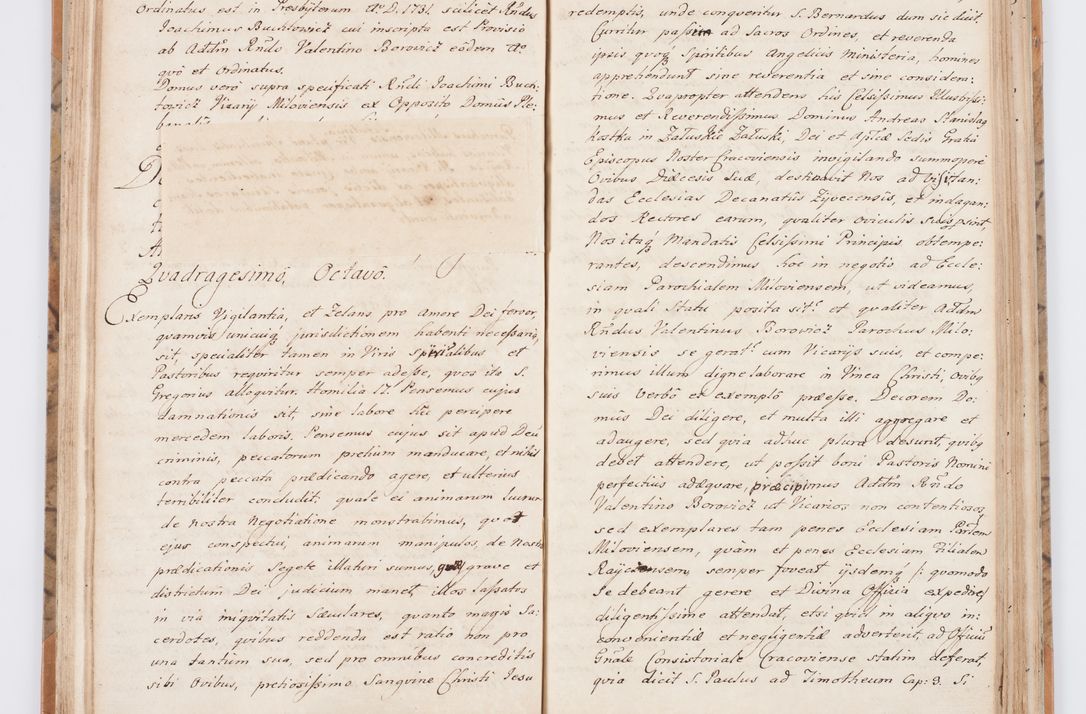 Ordinatus est in Presbyterum Aº D. 1731. scilicet Rñdus
Joachimus Buchtowicz cui inscripta est Provisio
ab Adm Rñdo Valentino Borowicz eódem Aº
quô et Ordinatus.
Domus verò supra specificati Rñdi Joachimi Buch:
towicz Vicarij Miloviensis ex Opposito Domûs Ple:
Qvadragesimô, Octavô.
Exemplaris Vigilantia, et Zelans pro amore Dei fervor,
quamvis unicuiq; jurisdictionem habenti necessariq,
sit, specialiter tamen in Viris spiritalibus et
Pastoribus requiritur semper adesse, quos ita S.
Gregorius alloquitur. Homilia 17. Pensemus cujus
damnationis sit sine labore hic percipere
mercedem laboris. Pensemus cujus sit apud Deũ
criminis, peccatorum pretium manducare, et nihil
contra peccata prædicando agere, et ulterius
terribiliter concludit; quale ei animarum lucrum
de nostra Negotiatione monstrabimus, quot
ejus conspectui, animarum manipulos, de Nostra
prædicationis Segete illaturi sumus, grave et
districtum Dei judicium manet illos lapsatos
in via iniquitatis Sæculares, quanto magis Sa:
cerdotes, quibus reddenda est ratio non pro
una tantum sua, sed pro omnibus concreditis
sibi Ovibus, pretiosissimo Sangvine Christi Jesu
redemptis, unde conqveritur S. Bernardus dum sic dicit
Curritur passim ad Sacros Ordines, et reverenda
ipsis quoq; Spiritibus Angelicis ministeria, homines
apprehendunt sine reverentia et sine considera:
tione. Qvapropter attendens his Celsissimus Illustrissi:
mus et Reverendissimus Dominus Andreas Stanislaq
Kostka in Załuskie Załuski, Dei et Aplicæ Sedis Gratiâ
Episcopus Noster Cracoviensis invigilando summoperé
Ovibus Diæcesis Suæ, destinavit Nos ad visitan:
das Ecclesias Decanatûs Zijvecensis, et indagan:
dos Rectores earum, qvaliter oviculis suis præsint,
Nos itaq; Mandatis Celsissimi Principis obtempe:
rantes, descendimus hoc in negotio ad Eccle:
siam Parochialem Miloviensem, ut videamus,
in quali Statu posita sit? et qvaliter Adm
Rñdus Valentinus Borowicz Parochus Milo:
viensis se gerat? cum Vicarijs suis, et compe:
rimus illum digne laborare in Vinea Christi, Ovibq
suis Verbô et exemplô præesse. Decorem Do:
mûs Dei diligere, et multa illi aggregare et
adaugere, sed qvia adhuc plura desunt, qvibq
debet attendere, ut possit boni Pastoris Nomini
perfectius adæquare, præcipimus Adm Rñdo
Valentino Borowicz ut Vicarios non contentiosos,
sed exemplares tam penes Ecclesiam Parlem
Miloviensem, qvàm et penes Ecclesiam Filialem
Rayczensem semper foveat ijsdemq; /: qvomodo
se debeant gerere et Divina Officia expedire/
diligentissime attendat, etsi qvid in aliqvo in:
convenientiæ et negligentiæ adverterit, ad Officiũ
Gnâle Consistoriale Cracoviense statim deferat,
qvia dicit S. Paulus ad Timotheum Cap: 3. Si